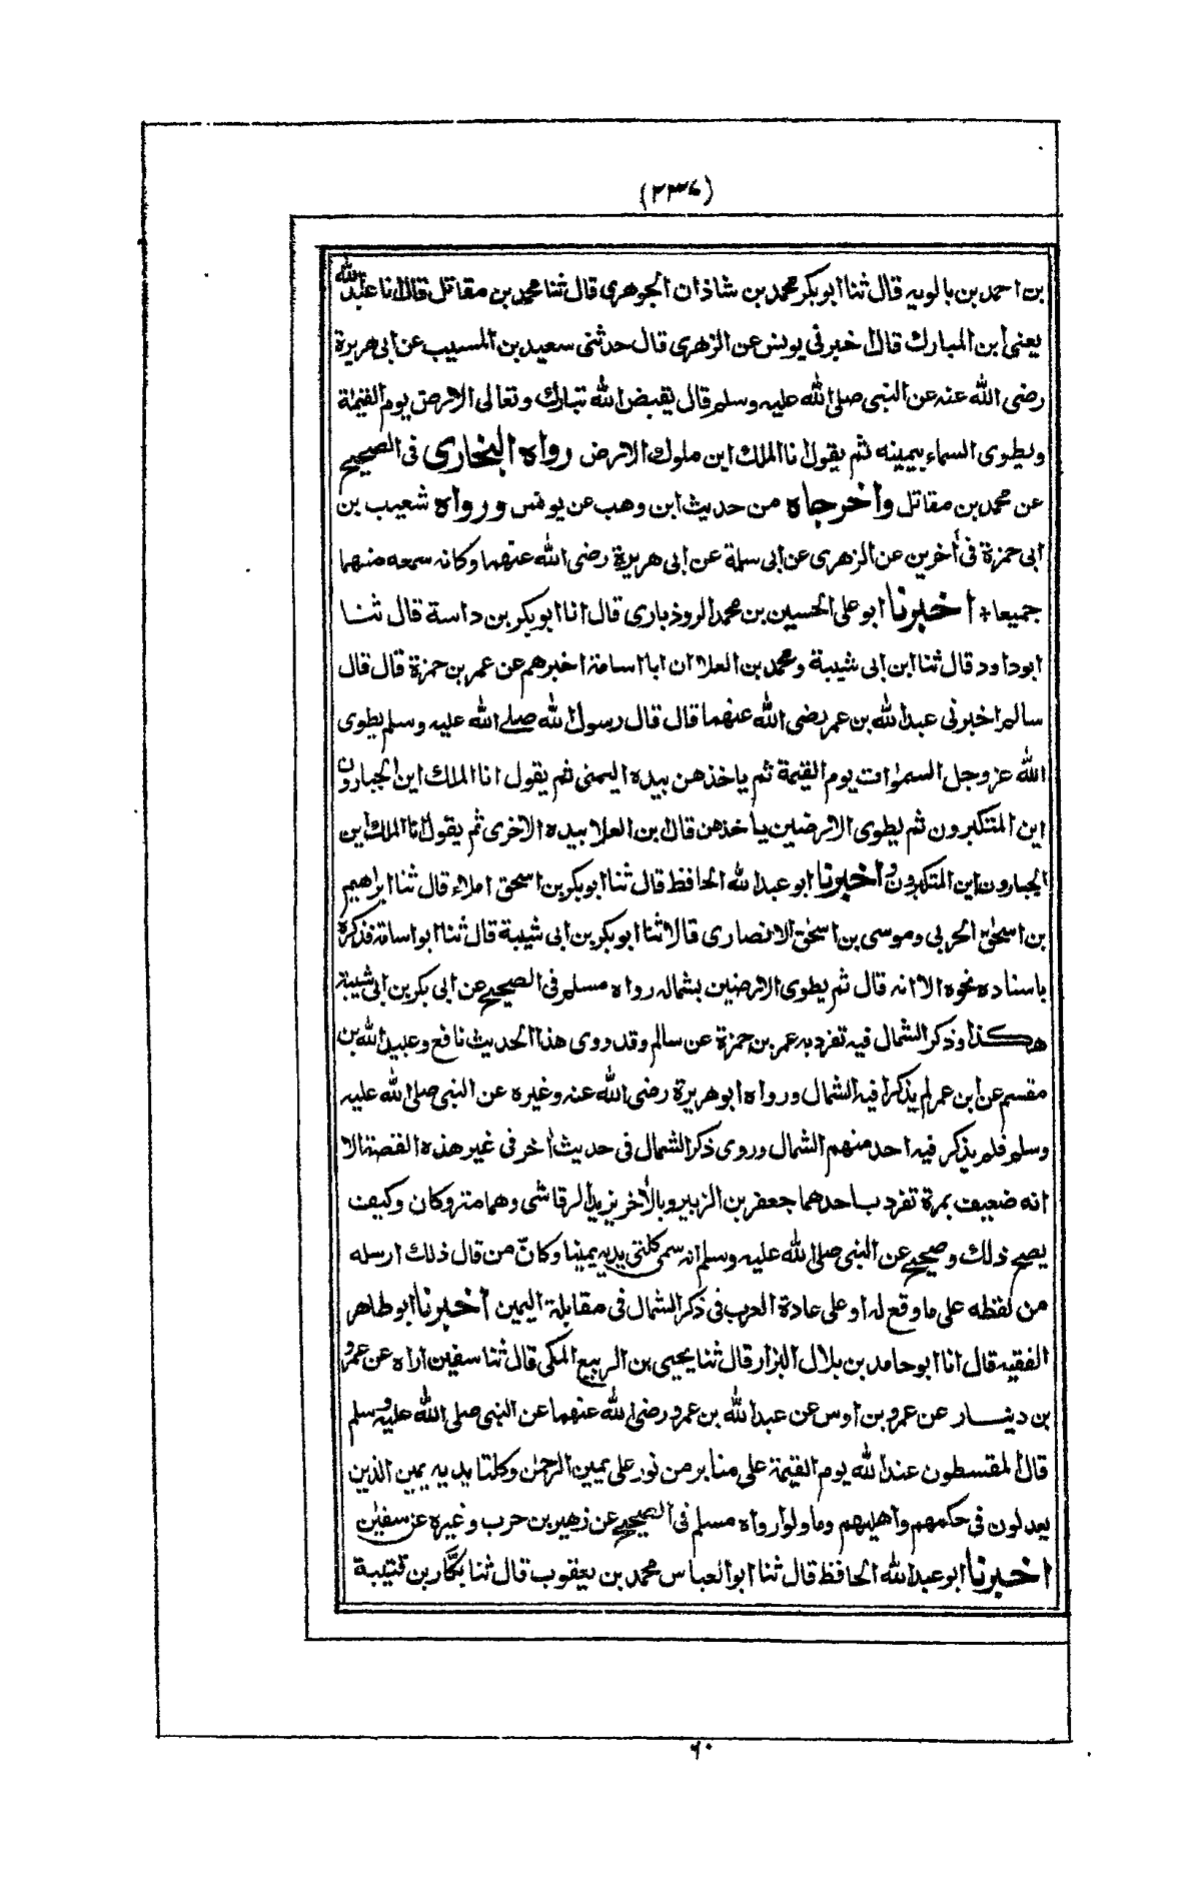 (٢٣٦)
بن احمد بن بالويه قال ثنا ابو بكر محمد بن شاذان الجوهرى قال ثنا محمد بن مقاتل قال انا عبد الله
يعنى ابن المبارك قال اخبرنى يونس عن الزهرى قال حدثنى سعيد بن المسيب عن ابى هريرة
رضى الله عنه عن النبى صلى الله عليه وسلم قال يقبض الله تبارك وتعالى الارض يوم القيمة
ويطوى السماء بيمينه ثم يقول انا الملك اين ملوك الارض رواه البخارى فى الصحيح
عن محمد بن مقاتل واخرجاه من حديث ابن وهب عن يونس ورواه شعيب بن
ابى حمزة فى أخرين عن الزهرى عن ابى سلمة عن ابى هريرة رضى الله عنهما وكانه سمعه منهما
جميعا+ اخبرنا ابو على الحسين بن محمد الروذبارى قال انا ابو بكر بن داسة قال ثنا
ابوداود قال ثنا ابن ابى شيبة ومحمد بن العلا ان ابا اسامة اخبرهم عن عمر بن حمزة قال قال
سالم اخبرنى عبد الله بن عمر رضى الله عنهما قال قال رسول الله صلے الله عليه وسلم يطوى
الله عز وجل السمٰوات يوم القيمة ثم ياخذهن بيده اليمنى ثم يقول انا الملك اين الجبارون
اين المتكبرون ثم يطوى الارضين ياخذهن قال ابن العلا بيده الاخرى ثم يقول انا الملك اين
الجبارون اين المتكبرون واخبرنا ابو عبد الله الحافظ قال ثنا ابو بكر بن اسحق املاء قال ثنا ابراهيم
بن اسحٰق الحربى وموسى بن اسحٰق الانصارى قالا ثنا ابو بكر بن ابى شيبة قال ثنا ابو اسامة فذكره
باسناده نحوه الا انه قال ثم يطوى الارضين بشماله رواه مسلم فى الصحيح عن ابى بكر بن ابى شيبة
هكذا وذكر الشمال فيه تفرد به عمر بن حمزة عن سالم وقد روى هذا الحديث نافع وعبيد الله بن
مقسم عن ابن عمر لم يذكرا فيه الشمال ورواه ابو هريرة رضى الله عنه وغيره عن النبى صلى الله عليه
وسلم فلم يذكر فيه احد منهم الشمال وروى ذكر الشمال فى حديث أخر فى غير هذه القصة الا
انه ضعيف بمرة تفرد باحدهما جعفر بن الزبير وبالأخر يزيد الرقاشى وهما متروكان وكيف
يصح ذلك وصحيح عن النبى صلى الله عليه وسلم انه سمى كلتى يديه يمينا وكانّ من قال ذلك ارسله
من لفظه على ما وقع له او على عادة العرب فى ذكر الشمال فى مقابلة اليمين اخبرنا ابو طاهر
الفقيه قال انا ابو حامد بن بلال البزار قال ثنا يحيى بن الربيع المكى قال ثنا سفين اراه عن عمرو
بن دينار عن عمرو بن اوس عن عبد الله بن عمرو رضى الله عنهما عن النبى صلى الله عليه وسلم
قال المقسطون عند الله يوم القيمة على منابر من نور على يمين الرحمٰن وكلتا يديه يمين الذين
يعدلون فى حكمهم واهليهم وما ولوا رواه مسلم فى الصحيح عن زهير بن حرب وغيره عن سفيٰن
اخبرنا ابو عبد الله الحافظ قال ثنا ابو العباس محمد بن يعقوب قال ثنا بكّار بن قتيبة
٦٠